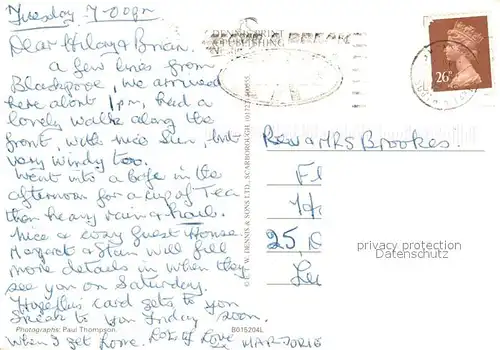 Tuesday 7-00pm
Dear Hilary & Brian.
a few lines from
Blackpool, we arrived
here about 1pm, had a
lovely walk along the
front, with nice sun, but
very windy too.
Went into a Cafe in the
afternoon for a cup of Tea
then heavy rain & hail.
Nice & cosy Guest House
Margaret & Stan will fill
more details in when they
see you on Saturday.
Hope this card gets to you
Speak to you Friday soon.
when I get home. Lots of Love
MARJORIE
Photographs: Paul Thompson.
B015204L
© E.T.W. DENNIS & SONS LTD., SCARBOROUGH
26P
Rev & MRS Brookes.
Fl
25,
privacy protection
Datenschutz